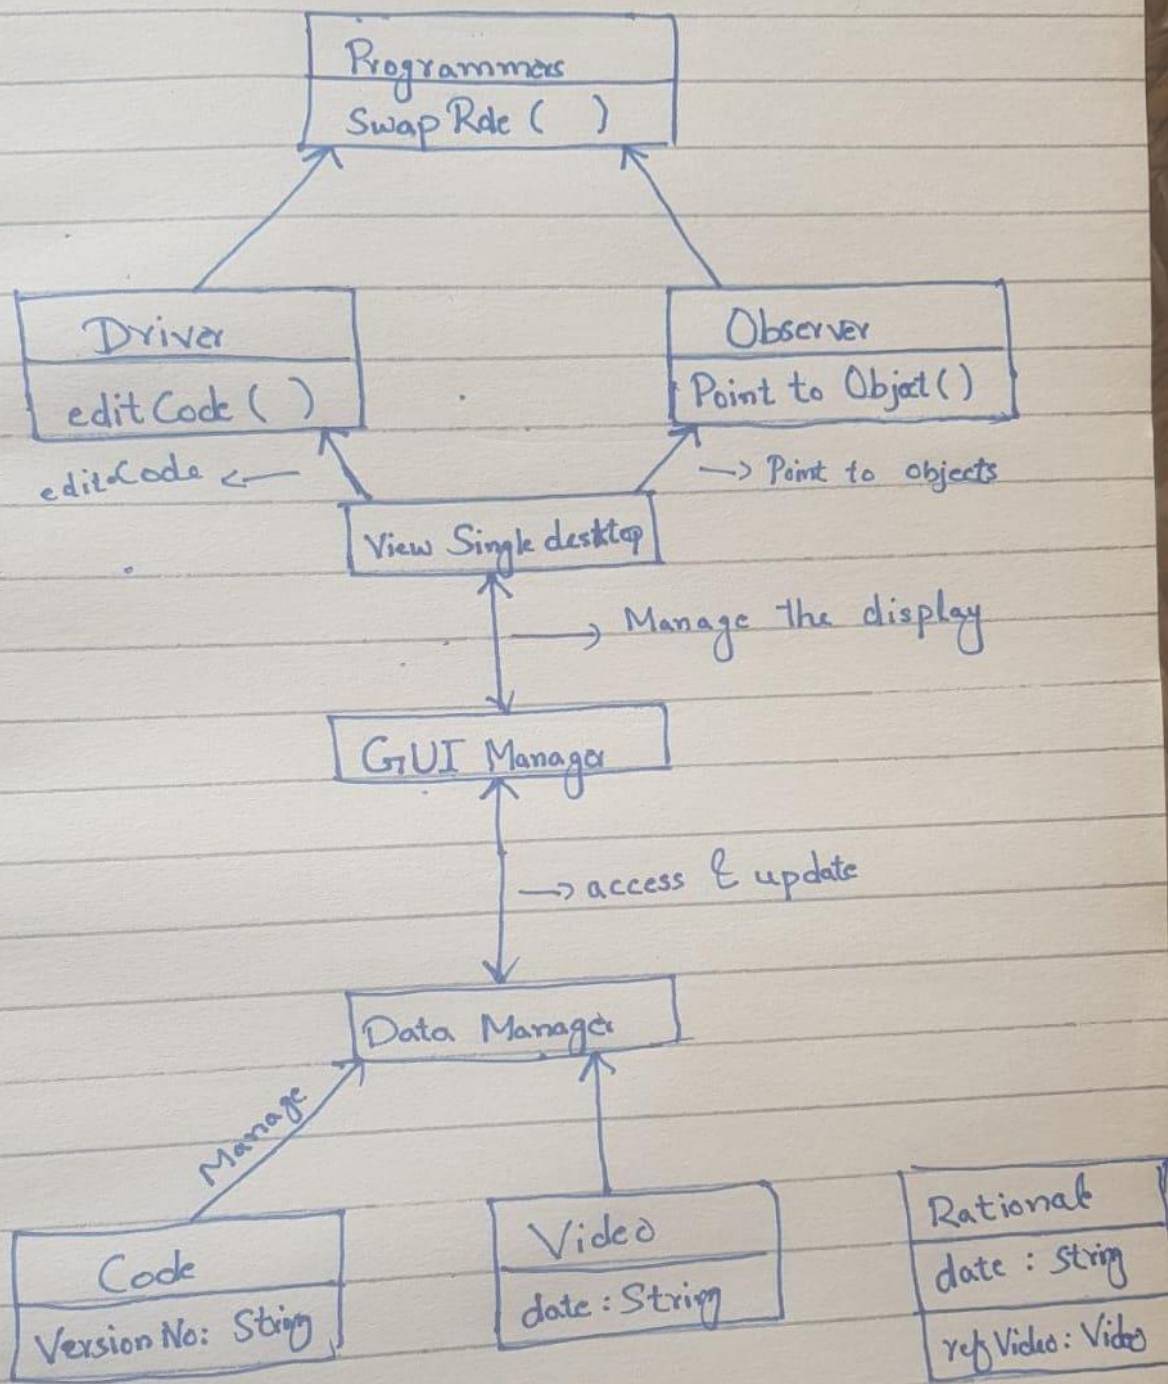 Programmers
Swap Role ( )
Driver
edit Code ( )
Observer
Point to Object ( )
edit Code
Point to objects
View Single desktop
Manage the display
GUI Manager
access & update
Data Manager
Manage
Code
Version No: String
Video
date : String
Rational
date : String
ref Video : Video